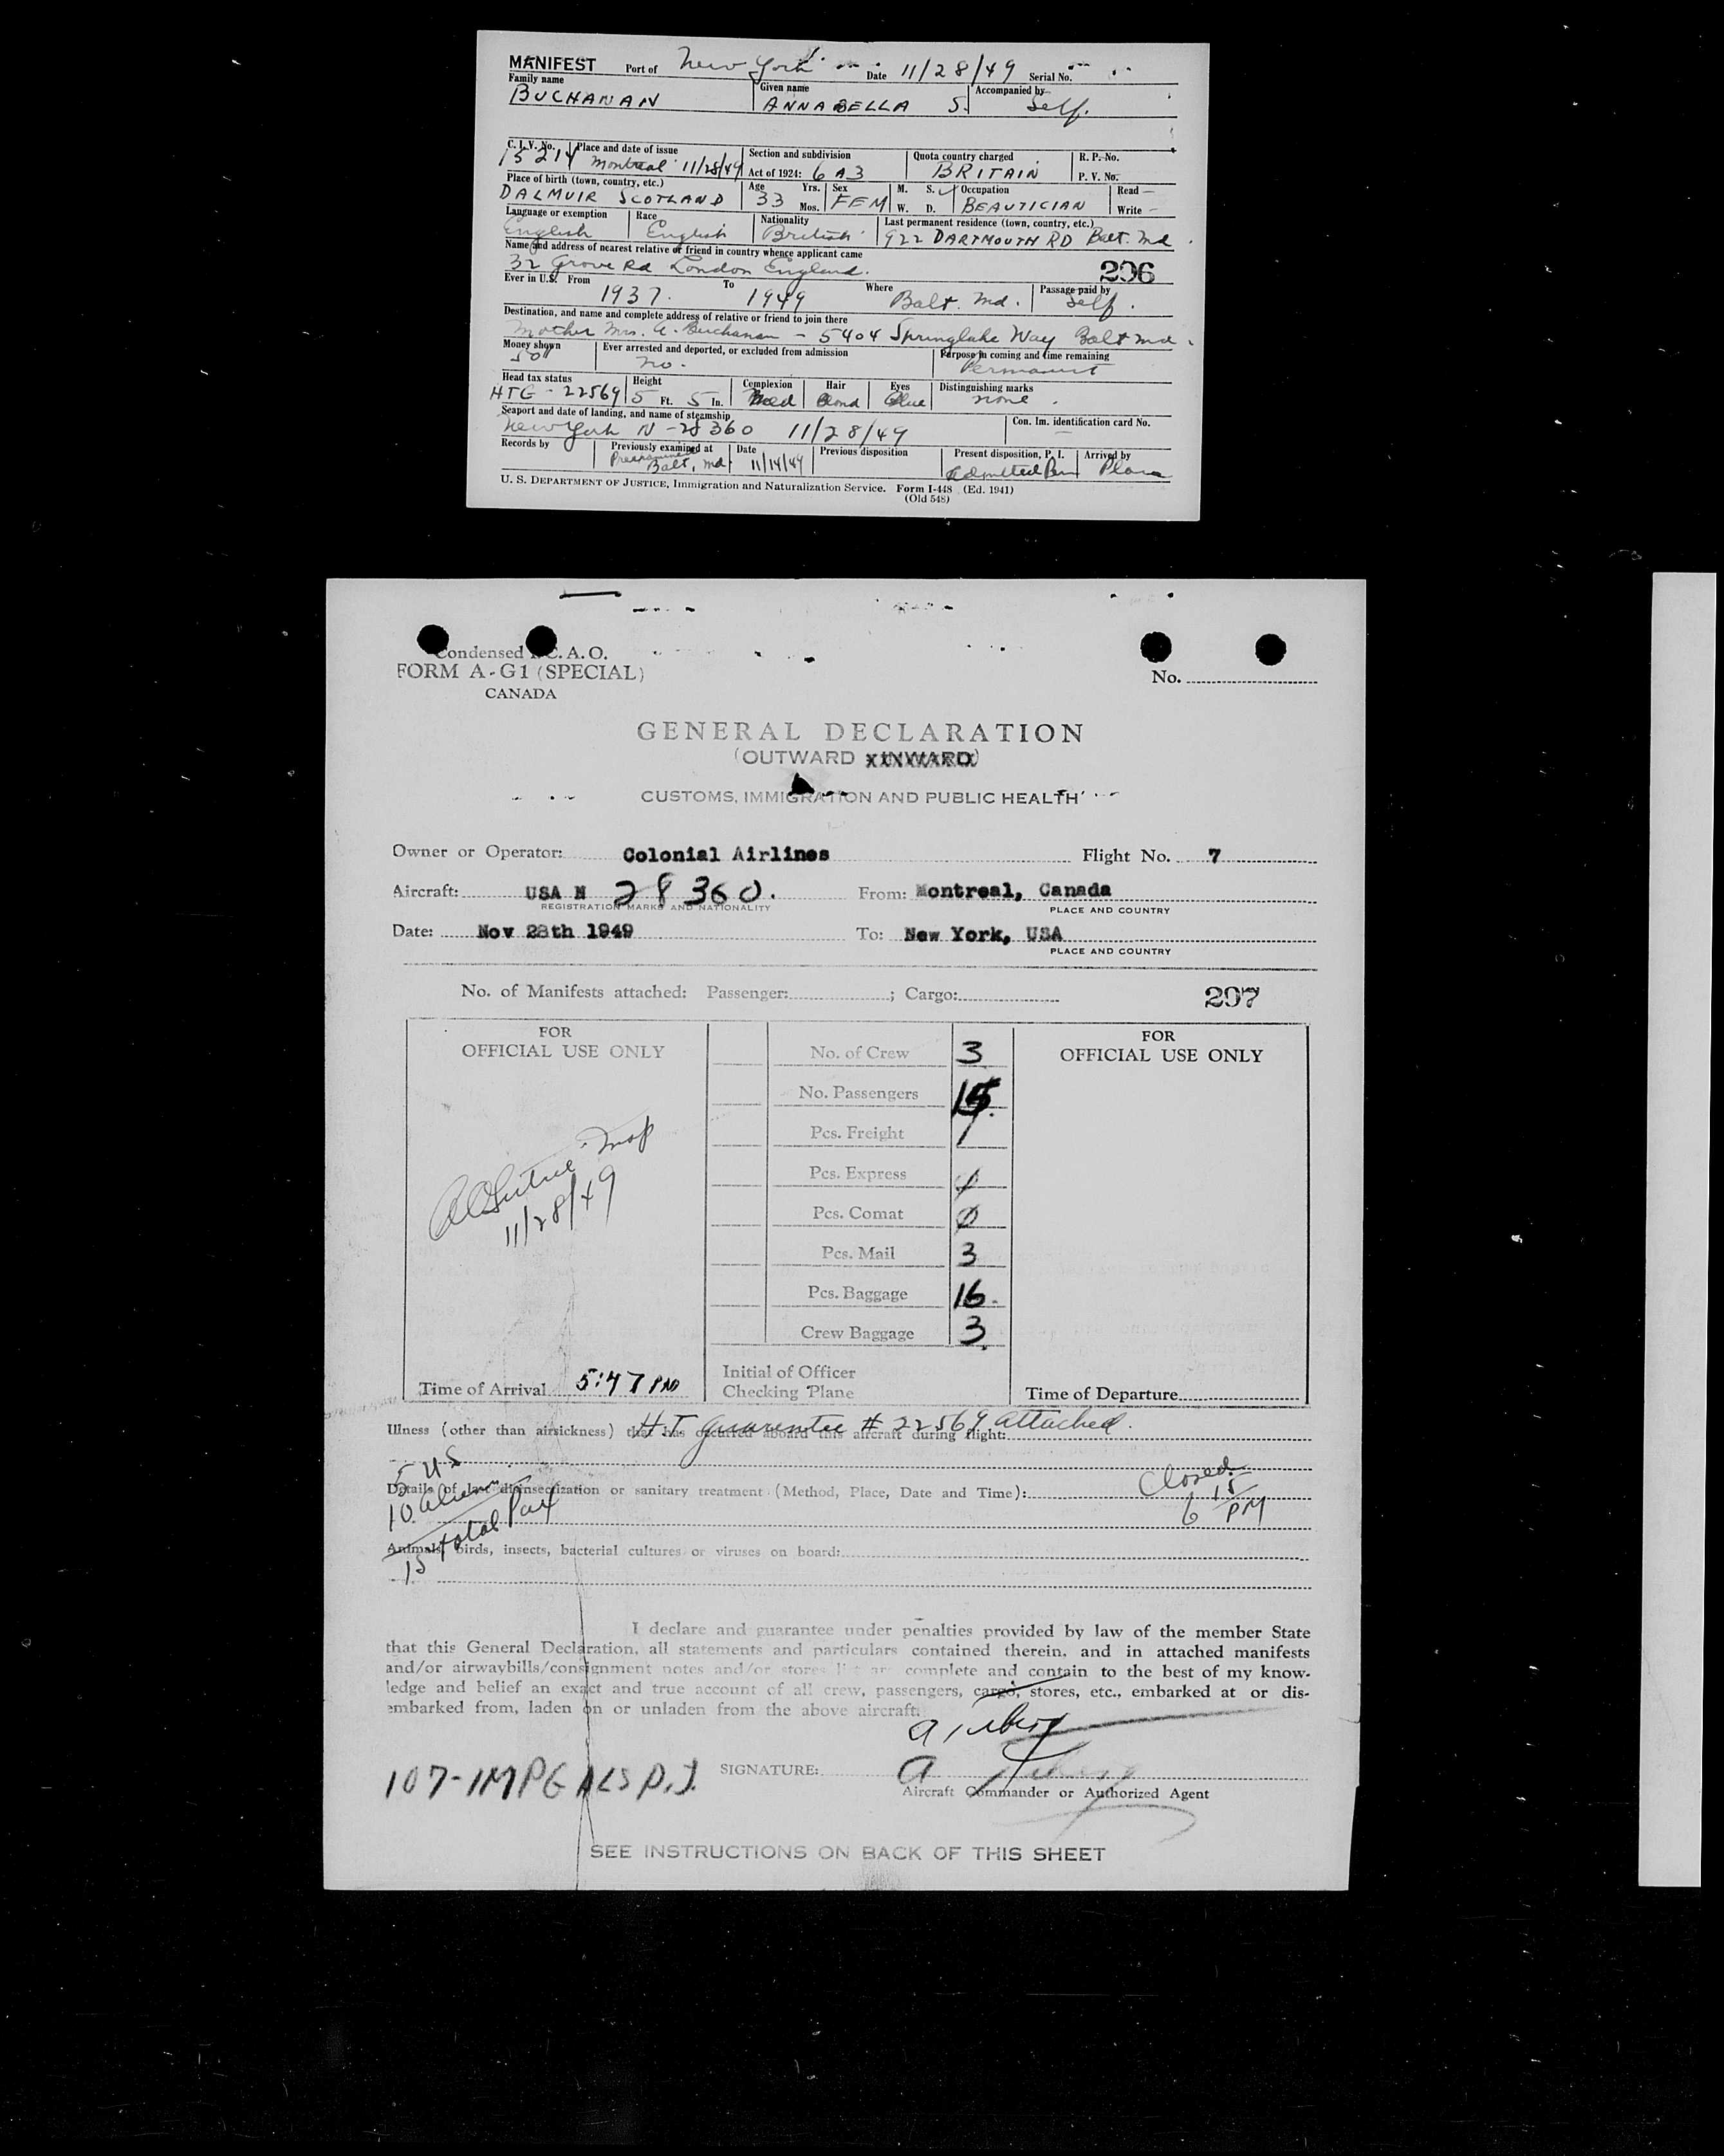 MANIFEST Port of New York Date 11/28/49 Serial No.
Family name Given name Accompanied by
BUCHANAN ANNABELLA S. Self.
C. I. V. No. Place and date of issue Section and subdivision Quota country charged R. P. No.
15214 Montreal 11/28/49 Act of 1924: 6 A 3 BRITAIN P. V. No.
Place of birth (town, country, etc.) Age Yrs. Sex M. S. ✓ Occupation Read —
DALMUIR SCOTLAND 33 Mos. FEM W. D. BEAUTICIAN Write —
Language or exemption Race Nationality Last permanent residence (town, country, etc.)
English English British 922 DARTMOUTH RD Balt. Md.
Name and address of nearest relative or friend in country whence applicant came
32 Grove Rd London England. 206
Ever in U.S. From To Where Passage paid by
1937. 1949 Balt. Md. Self.
Destination, and name and complete address of relative or friend to join there
Mother Mrs. A. Buchanan - 5404 Springlake Way Balt Md.
Money shown Ever arrested and deported, or excluded from admission Purpose in coming and time remaining
50 no. Permanent
Head tax status Height Complexion Hair Eyes Distinguishing marks
HTG - 22569 5 Ft. 5 In. Med Blond Blue none.
Seaport and date of landing, and name of steamship Con. Im. identification card No.
New York N-28360 11/28/49 —
Records by Previously examined at Date Previous disposition Present disposition, P. I. Arrived by
Preexamined Balt, Md 11/14/49 Admitted Perm Plane
U. S. DEPARTMENT OF JUSTICE, Immigration and Naturalization Service. Form I-448 (Ed. 1941)
(Old 548)
Condensed I.C.A.O.
FORM A-G1 (SPECIAL)
CANADA
No.
GENERAL DECLARATION
(OUTWARD INWARD)
CUSTOMS, IMMIGRATION AND PUBLIC HEALTH
Owner or Operator: Colonial Airlines Flight No. 7
Aircraft: USA N 28360. From: Montreal, Canada
REGISTRATION MARKS AND NATIONALITY PLACE AND COUNTRY
Date: Nov 28th 1949 To: New York, USA
PLACE AND COUNTRY
No. of Manifests attached: Passenger: ; Cargo: 207
FOR OFFICIAL USE ONLY
11/28/49
Time of Arrival 5:47 PM
No. of Crew 3
No. Passengers 15
Pcs. Freight 1
Pcs. Express
Pcs. Comat 0
Pcs. Mail 3
Pcs. Baggage 16
Crew Baggage 3
Initial of Officer
Checking Plane
FOR OFFICIAL USE ONLY
Time of Departure
H.T. guarentee # 22569 attached.
Illness (other than airsickness) that has occurred aboard this aircraft during flight:
5 US
Details of last disinsectization or sanitary treatment (Method, Place, Date and Time): Closed 6 15 PM
10 aliens
15 total Pax
Animals, birds, insects, bacterial cultures or viruses on board:
I declare and guarantee under penalties provided by law of the member State
that this General Declaration, all statements and particulars contained therein, and in attached manifests
and/or airwaybills/consignment notes and/or stores list are complete and contain to the best of my know-
ledge and belief an exact and true account of all crew, passengers, cargo, stores, etc., embarked at or dis-
embarked from, laden on or unladen from the above aircraft.
SIGNATURE:
Aircraft Commander or Authorized Agent
SEE INSTRUCTIONS ON BACK OF THIS SHEET